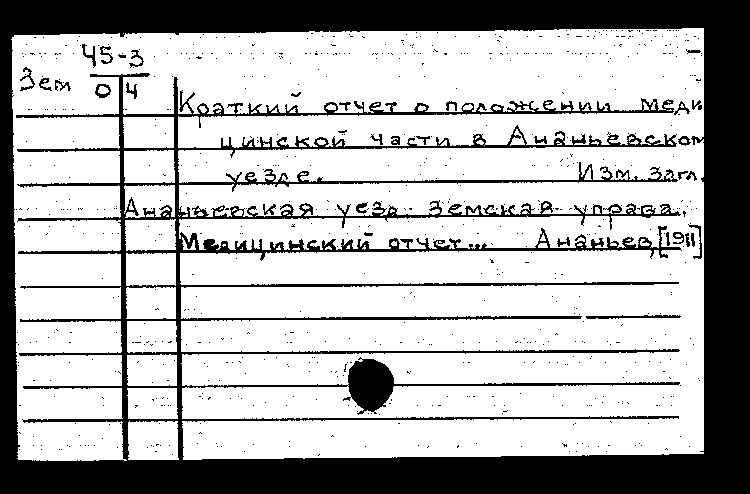 45-3
Зем 0 4
Краткий отчет о положении меди
цинской части в Ананьевском
уезде. Изм. загл.
Ананьевская уезд. земская управа.
Медицинский отчет... Ананьев, [1911]